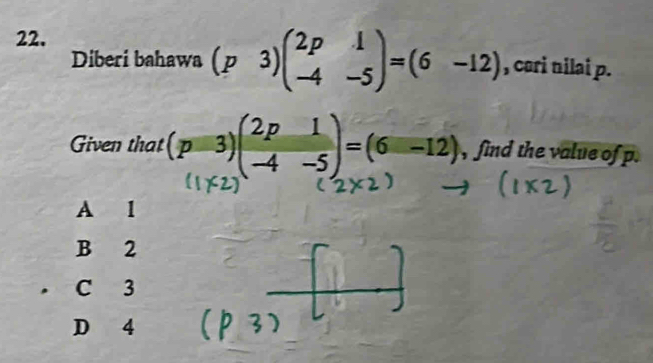 22.
Diberi bahawa (p 3)(2p 1
-4 -5)=(6 -12), cari nilai p.
Given that (p 3)(2p 1
-4 -5)=(6 -12), find the value of p.
(1×2) (2×2) → (1×2)
A 1
B 2
C 3
D 4
(P 3) [ ]